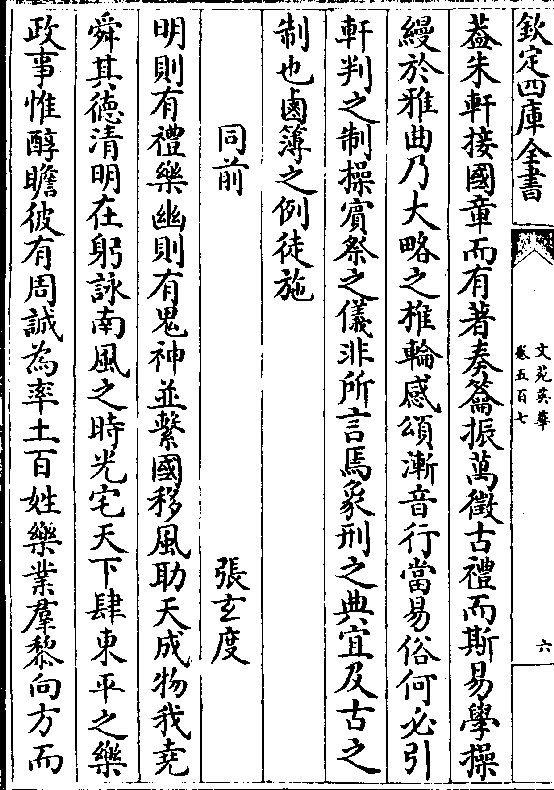 欽定四庫全書
文苑英華
卷五百七
六
葢朱軒接國章而有著奏籥振萬徵古禮而斯易學操
縵於雅曲乃大略之椎輪感頌漸音行當易俗何必引
軒判之制操賔祭之儀非所言焉象刑之典宜及古之
制也鹵簿之例徒施
同前
張玄度
明則有禮樂幽則有鬼神並繫國移風助天成物我堯
舜其徳清明在躬詠南風之時光宅天下肆東平之樂
政事惟醇瞻彼有周誠為率土百姓樂業羣黎向方而